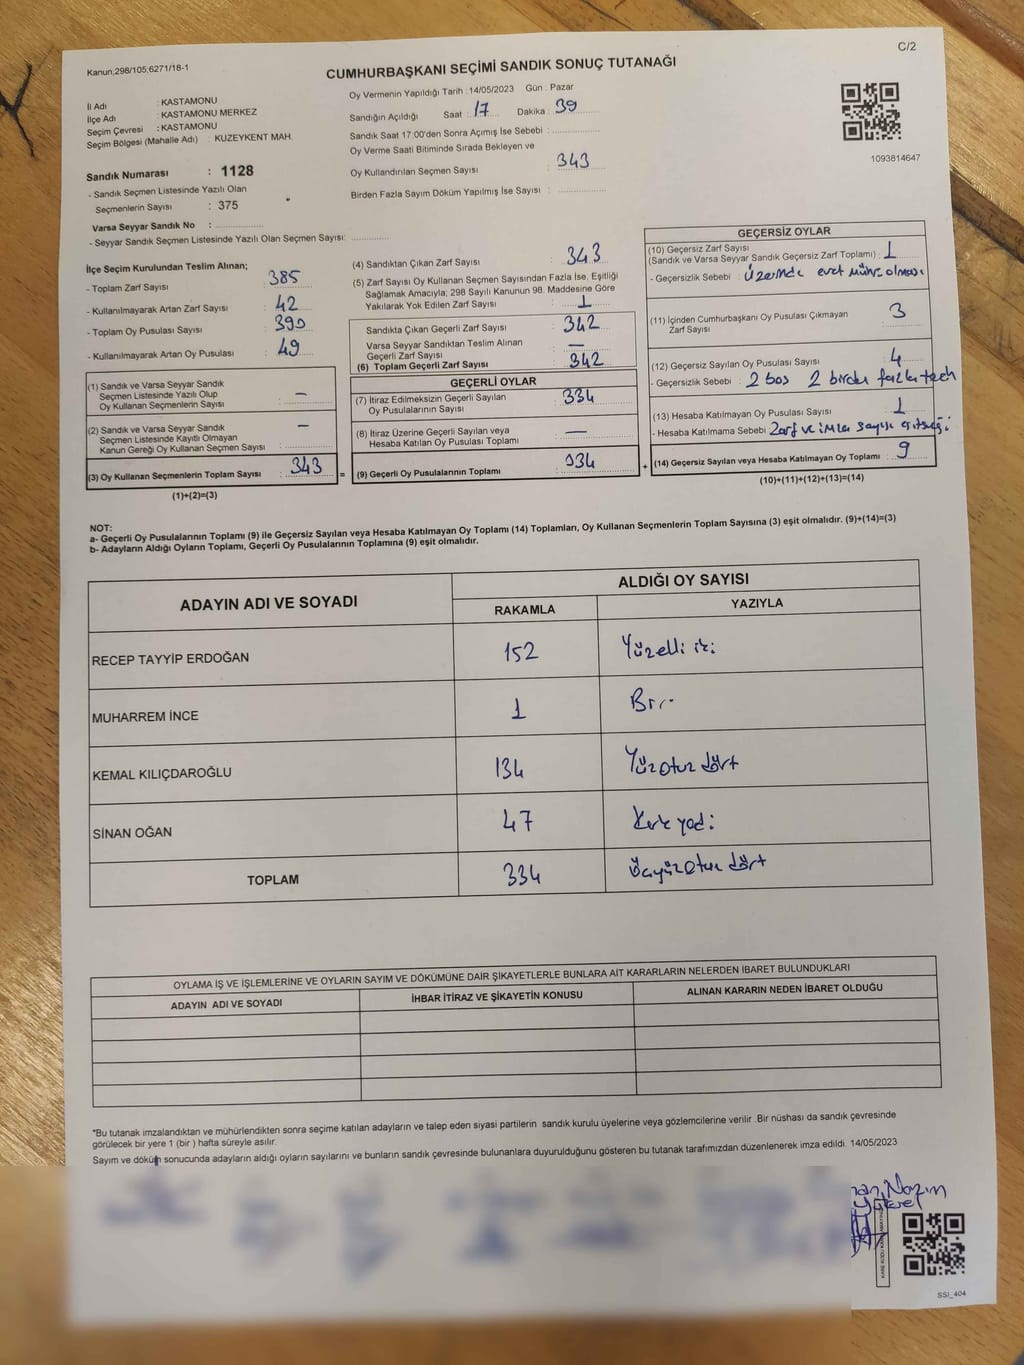 C/2
Kanun;298/105;6271/18-1
CUMHURBAŞKANI SEÇİMİ SANDIK SONUÇ TUTANAĞI
İl Adı : KASTAMONU
İlçe Adı : KASTAMONU MERKEZ
Seçim Çevresi : KASTAMONU
Seçim Bölgesi (Mahalle Adı) : KUZEYKENT MAH.
Sandık Numarası : 1128
- Sandık Seçmen Listesinde Yazılı Olan
Seçmenlerin Sayısı : 375
Varsa Seyyar Sandık No :
- Seyyar Sandık Seçmen Listesinde Yazılı Olan Seçmen Sayısı:
Oy Vermenin Yapıldığı Tarih : 14/05/2023 Gün : Pazar
Sandığın Açıldığı Saat : 17 Dakika : 39
Sandık Saat 17:00'den Sonra Açımış İse Sebebi :
Oy Verme Saati Bitiminde Sırada Bekleyen ve
Oy Kullandırılan Seçmen Sayısı : 343
Birden Fazla Sayım Döküm Yapılmış İse Sayısı :
1093814647
İlçe Seçim Kurulundan Teslim Alınan;
- Toplam Zarf Sayısı : 385
- Kullanılmayarak Artan Zarf Sayısı : 42
- Toplam Oy Pusulası Sayısı : 390
- Kullanılmayarak Artan Oy Pusulası : 49
(1) Sandık ve Varsa Seyyar Sandık
Seçmen Listesinde Yazılı Olup
Oy Kullanan Seçmenlerin Sayısı : –
(2) Sandık ve Varsa Seyyar Sandık
Seçmen Listesinde Kayıtlı Olmayan
Kanun Gereği Oy Kullanan Seçmen Sayısı : –
(3) Oy Kullanan Seçmenlerin Toplam Sayısı : 343
(1)+(2)=(3)
(4) Sandıktan Çıkan Zarf Sayısı : 343
(5) Zarf Sayısı Oy Kullanan Seçmen Sayısından Fazla İse, Eşitliği
Sağlamak Amacıyla; 298 Sayılı Kanunun 98. Maddesine Göre
Yakılarak Yok Edilen Zarf Sayısı : 1
Sandıkta Çıkan Geçerli Zarf Sayısı : 342
Varsa Seyyar Sandıktan Teslim Alınan
Geçerli Zarf Sayısı : –
(6) Toplam Geçerli Zarf Sayısı : 342
GEÇERLİ OYLAR
(7) İtiraz Edilmeksizin Geçerli Sayılan
Oy Pusulalarının Sayısı : 334
(8) İtiraz Üzerine Geçerli Sayılan veya
Hesaba Katılan Oy Pusulası Toplamı : –
= (9) Geçerli Oy Pusulalarının Toplamı : 334
GEÇERSİZ OYLAR
(10) Geçersiz Zarf Sayısı
(Sandık ve Varsa Seyyar Sandık Geçersiz Zarf Toplamı) : 1
- Geçersizlik Sebebi : üzerinde evet mührü olması
(11) İçinden Cumhurbaşkanı Oy Pusulası Çıkmayan
Zarf Sayısı : 3
(12) Geçersiz Sayılan Oy Pusulası Sayısı : 4
- Geçersizlik Sebebi : 2 boş 2 birden fazla tercih
(13) Hesaba Katılmayan Oy Pusulası Sayısı : 1
- Hesaba Katılmama Sebebi : Zarf ve imza sayısı eşitliği
+ (14) Geçersiz Sayılan veya Hesaba Katılmayan Oy Toplamı : 9
(10)+(11)+(12)+(13)=(14)
NOT:
a- Geçerli Oy Pusulalarının Toplamı (9) ile Geçersiz Sayılan veya Hesaba Katılmayan Oy Toplamı (14) Toplamları, Oy Kullanan Seçmenlerin Toplam Sayısına (3) eşit olmalıdır. (9)+(14)=(3)
b- Adayların Aldığı Oyların Toplamı, Geçerli Oy Pusulalarının Toplamına (9) eşit olmalıdır.
ADAYIN ADI VE SOYADI
ALDIĞI OY SAYISI
RAKAMLA YAZIYLA
RECEP TAYYİP ERDOĞAN 152 Yüzelli iki
MUHARREM İNCE 1 Bir
KEMAL KILIÇDAROĞLU 134 Yüzotuz dört
SİNAN OĞAN 47 Kırk yedi
TOPLAM 334 Üçyüzotuz dört
OYLAMA İŞ VE İŞLEMLERİNE VE OYLARIN SAYIM VE DÖKÜMÜNE DAİR ŞİKAYETLERLE BUNLARA AİT KARARLARIN NELERDEN İBARET BULUNDUKLARI
ADAYIN ADI VE SOYADI İHBAR İTİRAZ VE ŞİKAYETİN KONUSU ALINAN KARARIN NEDEN İBARET OLDUĞU
*Bu tutanak imzalandıktan ve mühürlendikten sonra seçime katılan adayların ve talep eden siyasi partilerin sandık kurulu üyelerine veya gözlemcilerine verilir. Bir nüshası da sandık çevresinde
görülecek bir yere 1 (bir ) hafta süreyle asılır.
Sayım ve döküm sonucunda adayların aldığı oyların sayılarını ve bunların sandık çevresinde bulunanlara duyurulduğunu gösteren bu tutanak tarafımızdan düzenlenerek imza edildi. 14/05/2023
Nazım
SSİ_404